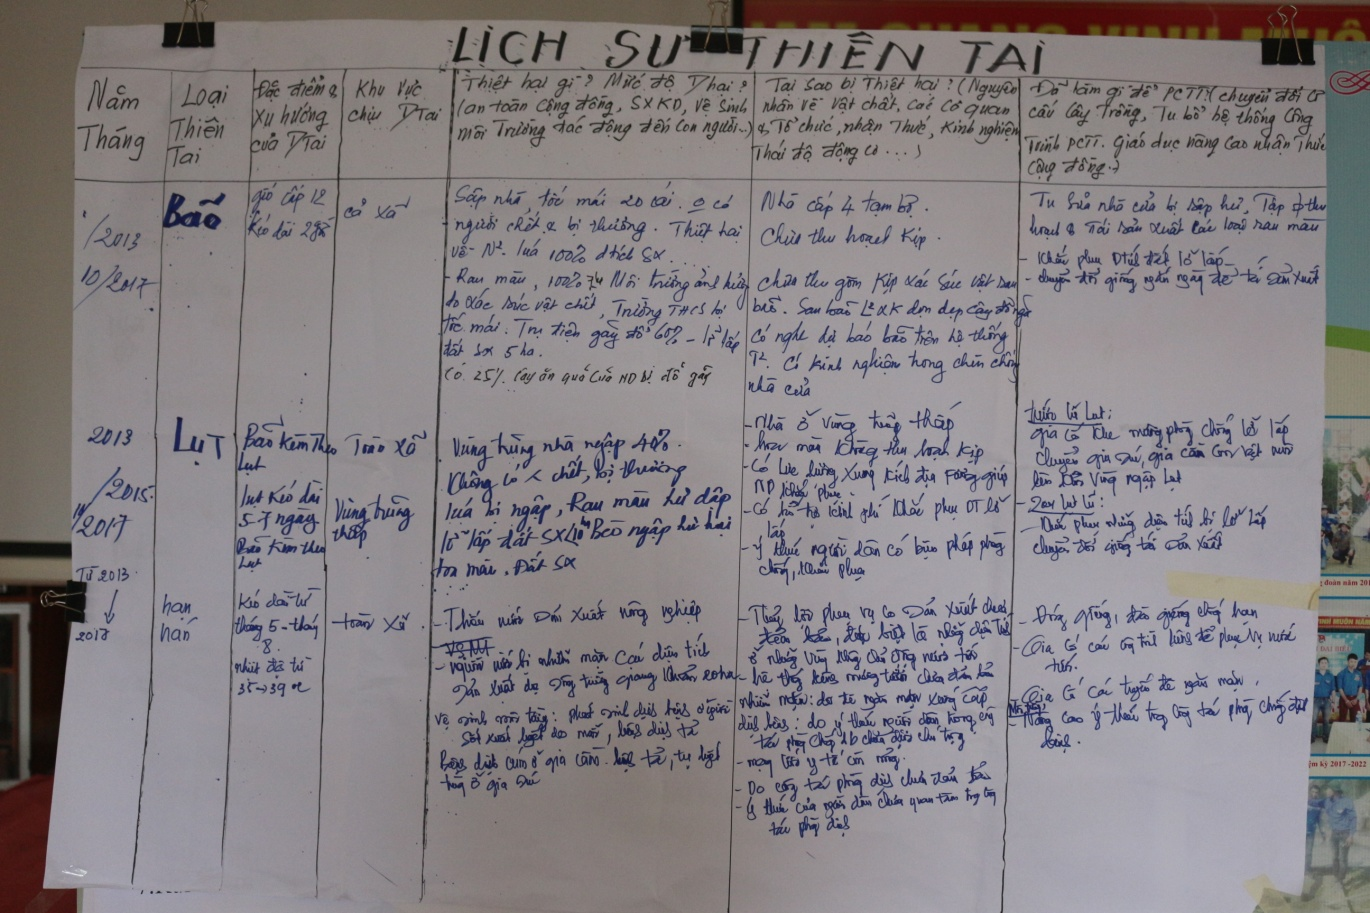 LỊCH SỬ THIÊN TAI
Năm
Tháng
Loại
Thiên
Tai
Đặc điểm &
xu hướng
của TTai
Khu vực
chịu TTai
Thiệt hại gì? Mức độ Thại?
(an toàn cộng đồng, SXKD, Vệ sinh
môi Trường tác động đến con người...)
Tại sao bị Thiệt hại? (Nguyên
nhân về vật chất, các cơ quan
& Tổ chức, nhân Thức, Kinh nghiệm
Thái độ động cơ...)
Đã làm gì để PCTT? (chuyển đổi cơ
cấu cây Trồng, Tu bổ hệ thống công
Trình PCTT. Giáo dục nâng cao nhận Thức
cộng đồng.)
/2013
10/2017
Bão
gió cấp 12
Kéo dài
cả xã
Sập nhà, tốc mái 20 cái. có
người chết & bị thương. Thiệt hại
về lúa 100% SX
- Rau màu, 100% Môi trường ảnh hưởng
do xác súc vật chết, Trường THCS bị
tốc mái. Trụ điện gãy đổ 60% -
đất SX 5 ha.
Có 25% cây ăn quả của ND bị đổ gãy
Nhà cấp 4 tạm bợ.
Chưa thu hoạch kịp.
Chưa thu gom kịp xác súc vật sau
bão. Sau bão dọn dẹp cây đổ gãy
Có nghe dự báo bão trên hệ thống
Có kinh nghiệm trong chằn chống
nhà cửa
Tu sửa nhà cửa bị sập hư, Tập
& Tái sản xuất các loại rau màu
- Khắc phục lở lấp
- chuyển đổi giống ngắn ngày để tái sản xuất
2013
/2015
2017
LụT
Bão kèm theo
Lụt
lụt kéo dài
5-7 ngày
Bão kèm theo
Lụt
Toàn xã
Vùng trũng
thấp
Vùng trũng nhà ngập 40%.
Không có chết, bị thương
lúa bị ngập, Rau màu hư dập
lở lấp đất SX Bèo ngập hư hại
hoa màu. Đất SX
- Nhà ở vùng trũng thấp
- hoa màu không thu hoạch kịp
- Có lực lượng xung kích địa phương giúp
khắc phục
- Có hỗ trợ kinh phí khắc phục DT lở
lấp
- Ý thức người dân có biện pháp phòng
chống, khắc phục
trước lũ lụt:
gia cố mương phòng chống lở lấp
chuyển gia súc, gia cầm
lên vùng ngập lụt
- Sau lụt lũ:
khắc phục những diện tích bị lở lấp
chuyển đổi giống tái sản xuất
Từ 2013
↓
2018
hạn
hán
Kéo dài từ
tháng 5 - tháng
8.
nhiệt độ từ
35→39
toàn xã
- Thiếu nước sản xuất nông nghiệp
- nguồn nước bị nhiễm mặn diện tích
sản xuất
Vệ sinh môi trường: phát sinh dịch bệnh ở người
Sốt xuất huyết
bệnh dịch cúm ở gia cầm. , tụ huyết
trùng ở gia súc
- Thủy lợi phục vụ sản xuất chưa
đảm bảo, đặc biệt là những diện tích
ở những vùng không chủ động nước tưới
- hệ thống kênh mương tưới chưa đảm bảo
nhiễm mặn: do đê ngăn mặn xuống cấp
dịch bệnh: do ý thức người dân trong công
tác phòng chống chưa được chú trọng
- mạng lưới y tế còn mỏng.
- Do công tác phòng dịch chưa đảm bảo
- Ý thức của người dân chưa quan tâm trong công
tác phòng dịch
- Đóng giếng, đào giếng chống hạn
- Gia cố các để phục vụ nước
tưới.
Gia cố các tuyến đê ngăn mặn.
- Nâng cao ý thức trong công tác phòng chống dịch
bệnh.
kỳ 2017-2022